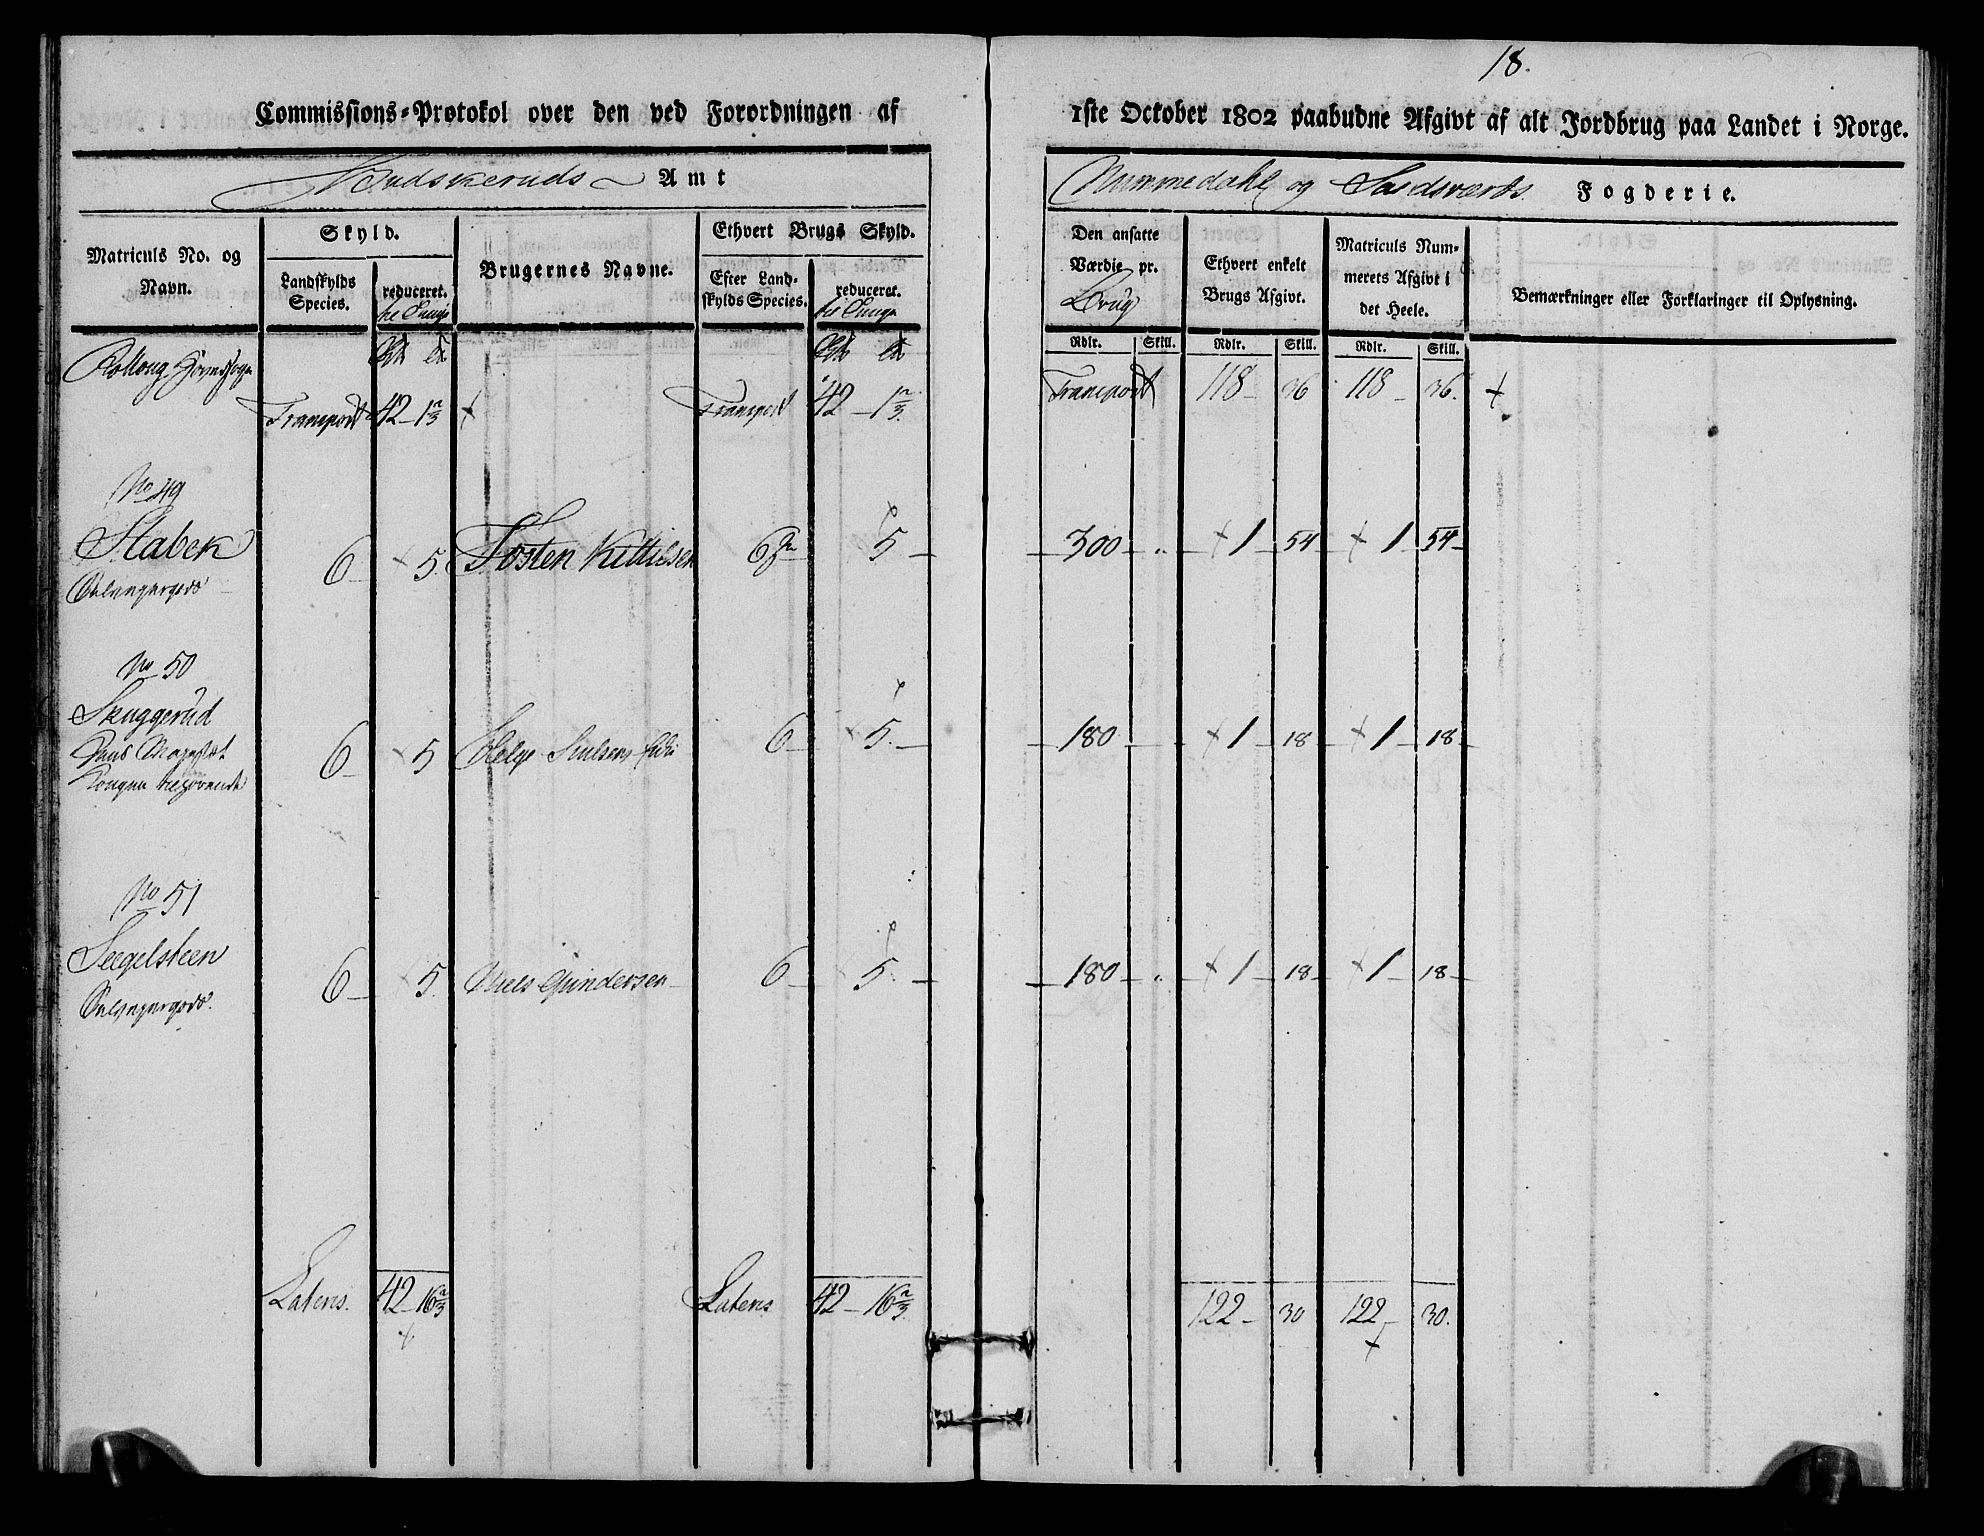 18.
Commissions-Protokol over den ved Forordningen af
1ste October 1802 paabudne Afgivt af alt Jordbrug paa Landet i Norge.
Budskeruds Amt
Nummedahls og Sandsværds Fogderie.
Matriculs No. og Navn.
Skyld.
Landskylds Species.
reduceret.
til Tunge
Brugernes Navne.
Ethvert Brugs Skyld.
Efter Landskylds Species.
reduceret.
til Tunge
Den ansatte Værdie pr. Brug
Ethvert enkelt Brugs Afgivt.
Matriculs Nummerets Afgivt i det Heele.
Bemærkninger eller Forklaringer til Oplysning.
Rdlr. Skill. Rdlr. Skill. Rdlr. Skill.
Rolloug Hovedsogn
Transport 42 - 1 2/3 + Transport 42 - 1 2/3. Transport 118 - 36 118 - 36. +
No 49
Stabek 6 - + 5. Tosten Kittilsen 6 5 - 300 - " + 1 - 54 + 1 - 54 -
Selveyergods
No 50
Skuggerud 6 - + 5 Helge 6 - + 5. - 180 - + 1 - 18 + 1 - 18 -
Hans Mayestæt
Kongen tilhørende
No 51
Seegelsteen 6 - + 5. Niels Gundersen 6 - 5. - 180 - " + 1 - 18 - + 1 - 18 -
Selveyergods.
Lateris. 42 - 16 2/3 Lateris 42 - 16 2/3. 122 - 30 122 - 30.
+ +